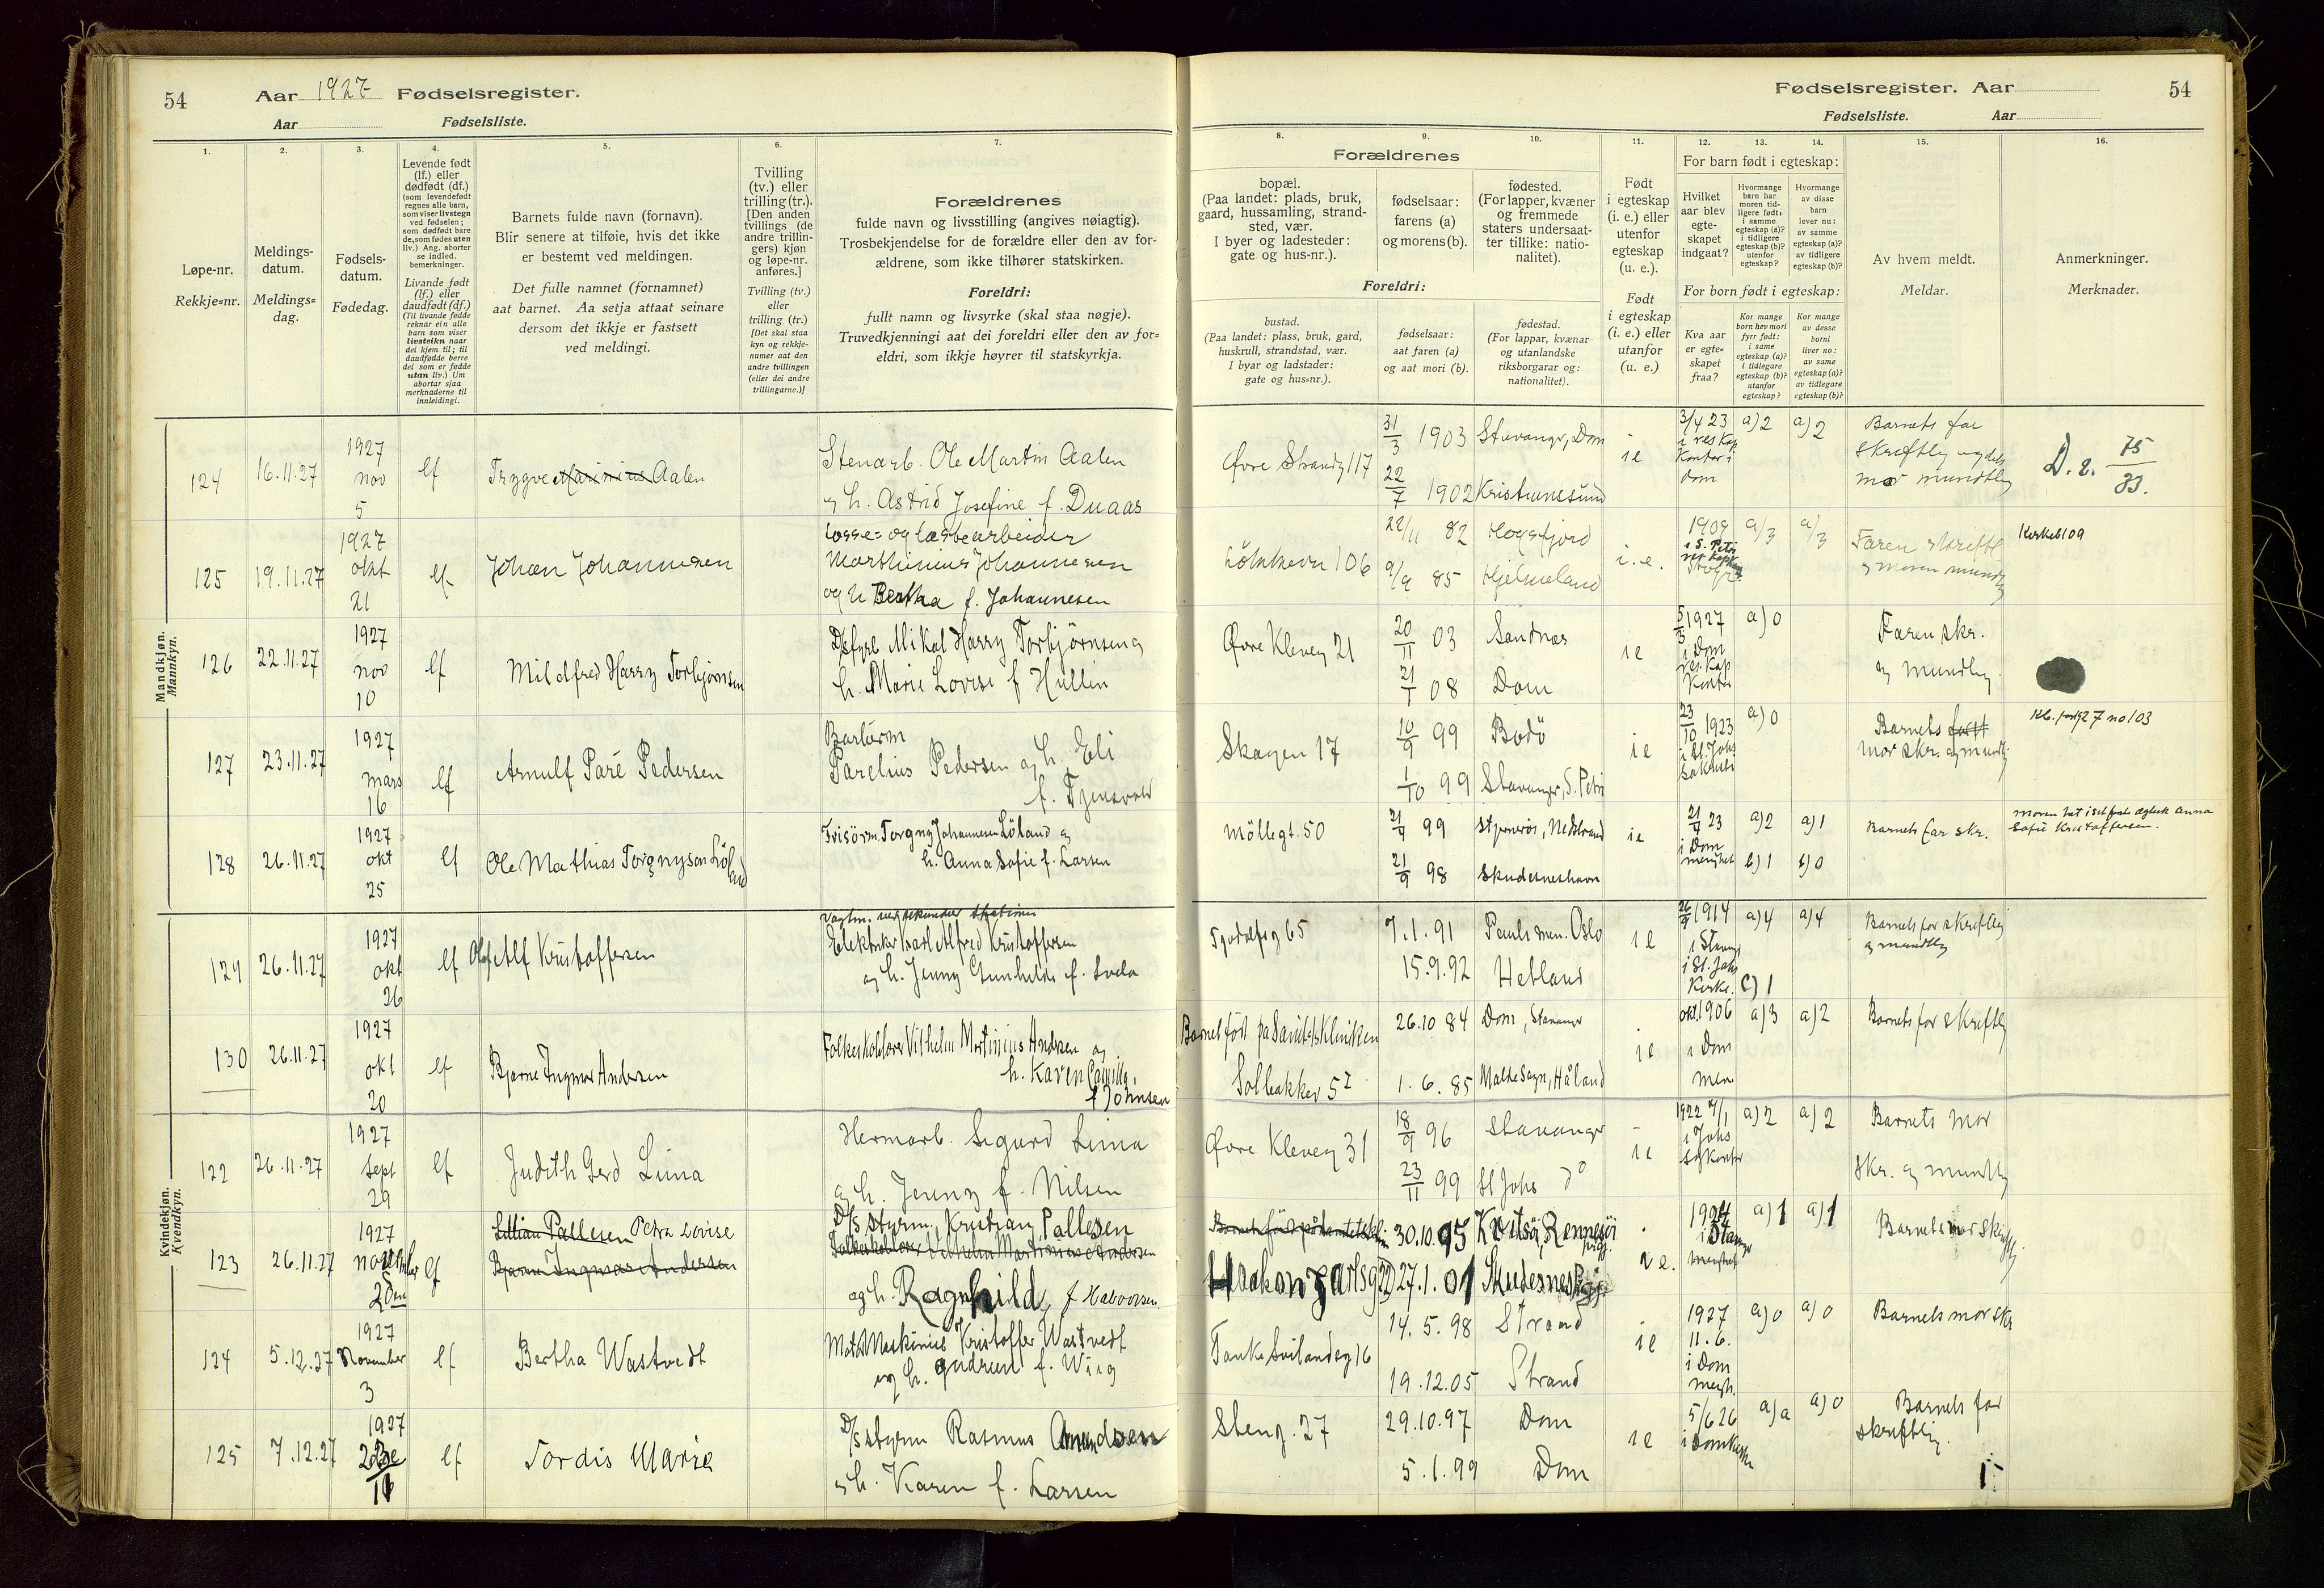 54
Aar 1927 Fødselsregister.
Aar Fødselsliste.
Fødselsregister. Aar
54
Fødselsliste. Aar
1.
Løpe-nr.
Rekkje=nr.
2.
Meldings-
datum.
Meldings=
dag.
3.
Fødsels-
datum.
Fødedag.
4.
Levende født
(lf.) eller
dødfødt (df.)
(som levendefødt
regnes alle barn,
som viser livstegn
ved fødselen;
som dødfødt bare
de, som fødes uten
liv.) Ang. aborter
se indled.
bemerkninger.
Livande født
(lf.) eller
daudfødt (df.)
(Til livande fødde
reknar ein alle
barn som viser
livsteikn naar
dei kjem til; til
daudfødde berre
dei som er fødde
utan liv.) Um
abortar sjaa
merknaderne til
innleidingi.
5.
Barnets fulde navn (fornavn).
Blir senere at tilføie, hvis det ikke
er bestemt ved meldingen.
Det fulle namnet (fornamnet)
aat barnet. Aa setja attaat seinare
dersom det ikkje er fastsett
ved meldingi.
6.
Tvilling
(tv.) eller
trilling (tr.).
[Den anden
tvillings (de
andre trillin-
gers) kjøn
og løpe-nr.
anføres.]
Tvilling (tv.)
eller
trilling (tr.)
[Det skal staa
kyn og rekkje-
numer aat den
andre tvillingen
(eller dei andre
trillingarne.)]
7.
Forældrenes
fulde navn og livsstilling (angives nøiagtig).
Trosbekjendelse for de forældre eller den av for-
ældrene, som ikke tilhører statskirken.
Foreldri:
fullt namn og livsyrke (skal staa nøgje).
Truvedkjenningi aat dei foreldri eller den av for=
eldri, som ikkje høyrer til statskyrkja.
8. 9. 10.
Forældrenes
bopæl.
(Paa landet: plads, bruk,
gaard, hussamling, strand-
sted, vær.
I byer og ladesteder:
gate og hus-nr.).
fødselsaar:
farens (a)
og morens (b).
fødested.
(For lapper, kvæner
og fremmede
staters undersaat-
ter tillike: natio-
nalitet).
Foreldri:
bustad.
(Paa landet: plass, bruk, gard,
huskrull, strandstad, vær.
I byar og ladstader:
gate og hus=nr.).
fødselsaar:
aat faren (a)
og aat mori (b).
fødestad.
(For lappar, kvænar
og utanlandske
riksborgarar og:
nationalitet).
11.
Født
i egteskap
(i. e.) eller
utenfor
egteskap
(u. e.).
Født
i egteskap
(i. e.) eller
utanfor
(u. e.)
12. 13. 14.
For barn født i egteskap:
Hvilket
aar blev
egte-
skapet
indgaat?
Hvormange
barn har
moren tid-
ligere født:
i samme
egteskap (a)?
i tidligere
egteskap (b)?
utenfor
egteskap?
Hvormange
av disse
barn
lever nu:
av samme
egteskap (a)?
av tidligere
egteskap (b)?
For born født i egteskap:
Kva aar
er egte=
skapet
fraa?
Kor mange
born hev mori
fyrr født:
i same
egteskap (a)?
i tidlegare
egteskap (b)?
utanfor
egteskap?
Kor mange
av desse
borni
liver no:
av same
egteskap (a)?
av tidlegare
egteskap (b)?
15.
Av hvem meldt.
Meldar.
16.
Anmerkninger.
Merknader.
Mandkjøn.
Mannkyn.
124 16.11.27 1927 nov 5 lf Trygve Marinius Aalen
Stenarb. Ole Martin Aalen
og h. Astrid Josefine f. Duaas
Øvre Strandg 117
31/3 1903 Stavanger, Dom
22/7 1902 Kristiansund
ie 3/4 23 i res Kap Kontor i Dom a) 2 a) 2
Barnets far
skriftlig og dets
mor mundtlig
D. a. 75/83.
125 19.11.27 1927 okt 21 lf Johan Johannesen
Losse= og lastearbeider
Marthinius Johannesen
og h Bertha f. Johannesen
106
22/11 82 Høgsfjord
9/9 85 Hjelmeland
i.e. 1909 i S. Petri a/3 a/3
Faren skriftl
og moren mundtlig
126 22.11.27 1927 nov 10 lf Mildfred Harry Torbjørnsen
Mikal Harry Torbjørnsen og
h. Marie Lovise f Hullin
Øvre Kleveg 21
20/11 03 Sandnes
21/1 08 Dom
ie 5/3 1927 i Dom res. Kap Kontor a) 0
Faren skr.
og mundtlig
127 23.11.27 1927 mars 16 lf Arnulf Paré Pedersen
Parelius Pedersen og h. Eli
f. Tjensvold
Skagen 17
10/9 99 Bodö
1/10 99 Stavanger, S. Petri
ie 23/10 1923 i St. Johs sakristi a) 0
Barnets fatt
mor skr. og mundtl.
27 no 103
128 26.11.27 1927 okt 25 lf Ole Mathias Torgnysen Löland
Frisörm. Torgny Johannesen Löland og
h. Anna Sofie f. Larsen
Möllegt. 50
21/9 99 Stjernerøi, Nedstrand
21/9 98 Skudeneshavn
ie 21/4 23 i Dom menighet a) 2 a) 1
b) 1 b) 0
Barnets far skr.
Anna
Sofie Kristoffersen.
129 26.11.27 1927 okt 26 lf Olaf Alf Kristoffersen
Elektriker Karl Alfred Kristoffersen
og h. Jenny Gunhilde f. Svela
65
7.1.91 Pauls men. Oslo
15.9.92 Hetland
ie 26/9 1914 i Stavang i St. Johs Kirke. a) 4 a) 4
c) 1
Barnets far skriftlig
og mundtlig
130 26.11.27 1927 okt 20 lf Bjarne Ingmar Andersen
Vilhelm Martinius Andersen og
h. Karen Camilla,
f Johnsen
Barnet född på Sanitetsklinikken
Solbakkev 52
26.10 84 Dom, Stavanger
1.6.85 Malde Sogn, Håland
ie okt. 1906 i Dom men a) 3 a) 2
Barnets far skriftlig
Kvindekjøn.
Kvendkyn.
122 26.11.27 1927 Sept 29 lf Judith Gerd Lima
Hermarb. Sigurd Lima
og h. Jenny f. Nilsen
Øvre Kleveg 31
18/9 96 Stavanger
23/11 99 St Johs do
ie 1922 7/1 i Johs a) 2 a) 2
Barnets mor
skr. og mundtlig
123 26.11.27 1927 november lf Lillian Pallesen Petra Lovise
Bjarne Ingmar Andersen
D/s styrm. Kristian Pallesen
Vilhelm Martinius Andersen
og h. Ragnhild, f Halvorsen
Haakon Jarlsg
30.10.95 Kvitsöi, Rennesöi
27.1.01 Skudenes
1924 a) 1 a) 1
Barnets mor skriftlig
124 5.12.27 1927 November 3 lf Bertha Wastvedt
Kristoffer Wastvedt
og h. Gudrun f. Wiig
Tanke Svilandsg 16
14.5.98 Strand
19.12.05 Strand
ie 1927 11.6. i Dom mengh. a) 0 a) 0
Barnets mor skr
125 7.12.27 1927 lf Tordis Marie
D/s styrm Rasmus Amundsen
og h. Karen f. Larsen
Steng. 27
29.10.97 Dom
5.1.99 Dom
ie 5/6 26 i Domkirke a) 0
Barnets far
skriftlig.